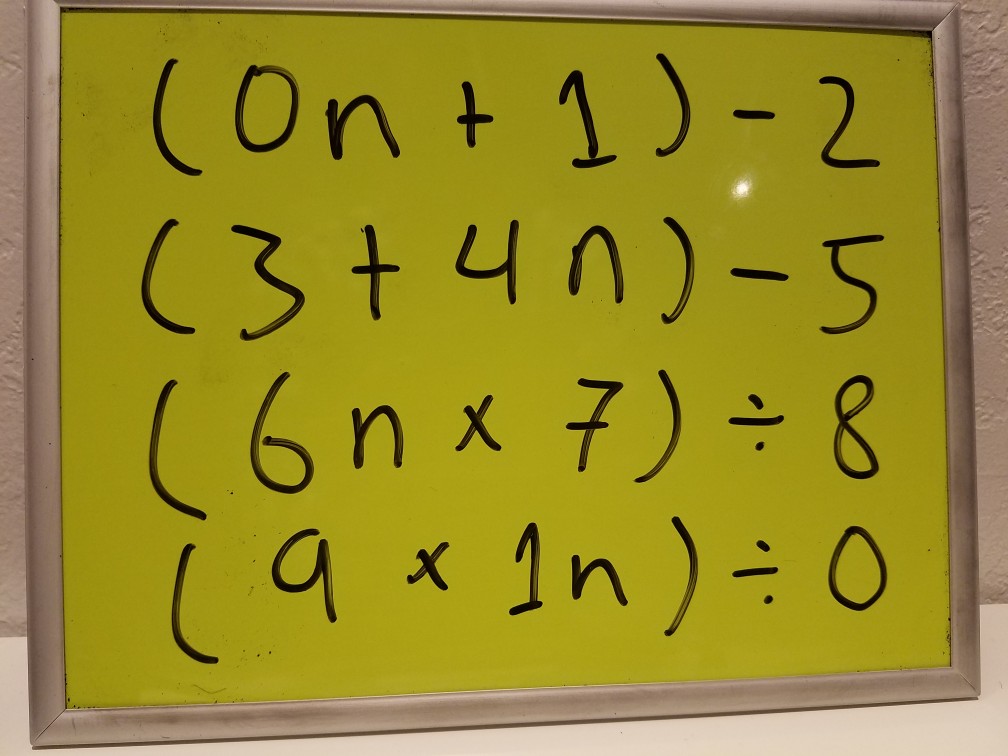 (0n + 1) - 2
(3 + 4n) - 5
(6n × 7) ÷ 8
(9 × 1n) ÷ 0